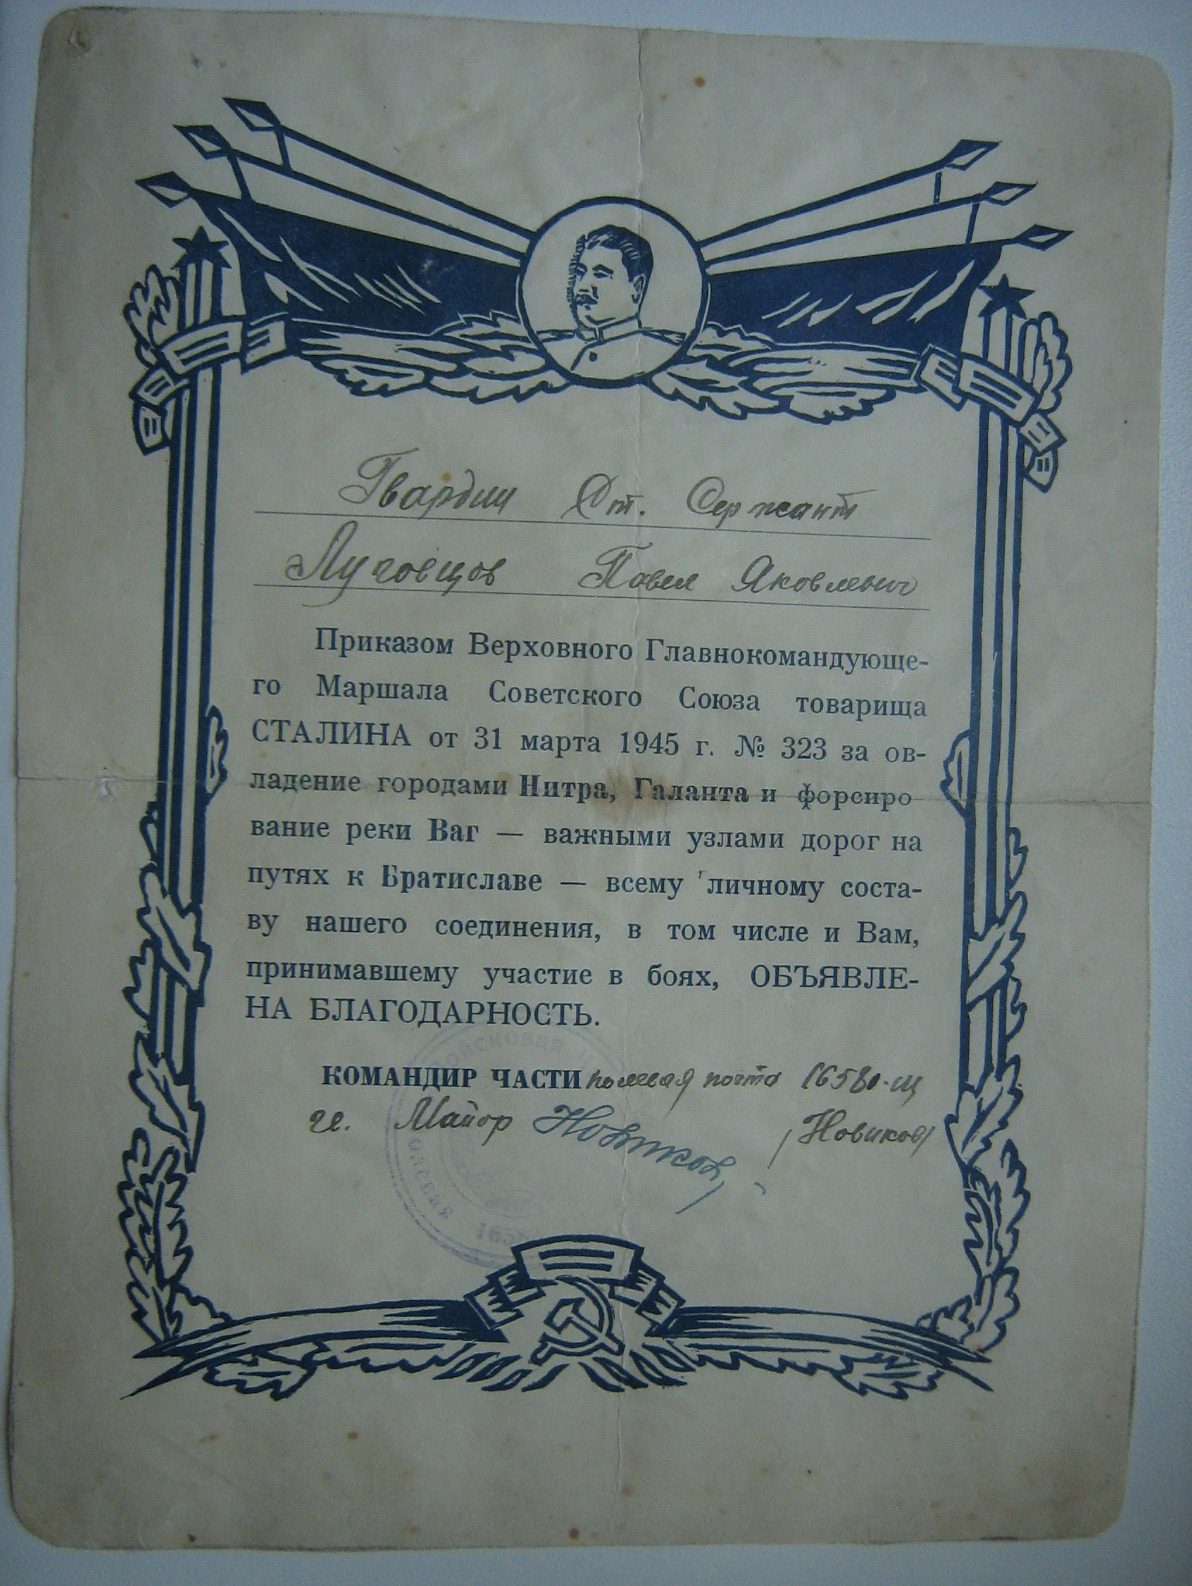 Гвардии Ст. Сержант
Луговцов Павел Яковлевич
Приказом Верховного Главнокомандующе-
го Маршала Советского Союза товарища
СТАЛИНА от 31 марта 1945 г. № 323 за ов-
ладение городами Нитра, Галанта и форсиро
вание реки Ваг — важными узлами дорог на
путях к Братиславе — всему личному соста-
ву нашего соединения, в том числе и Вам,
принимавшему участие в боях, ОБЪЯВЛЕ-
НА БЛАГОДАРНОСТЬ.
КОМАНДИР ЧАСТИ полевая почта 16580-щ
Майор Новиков /Новиков/
войсковая
полевая